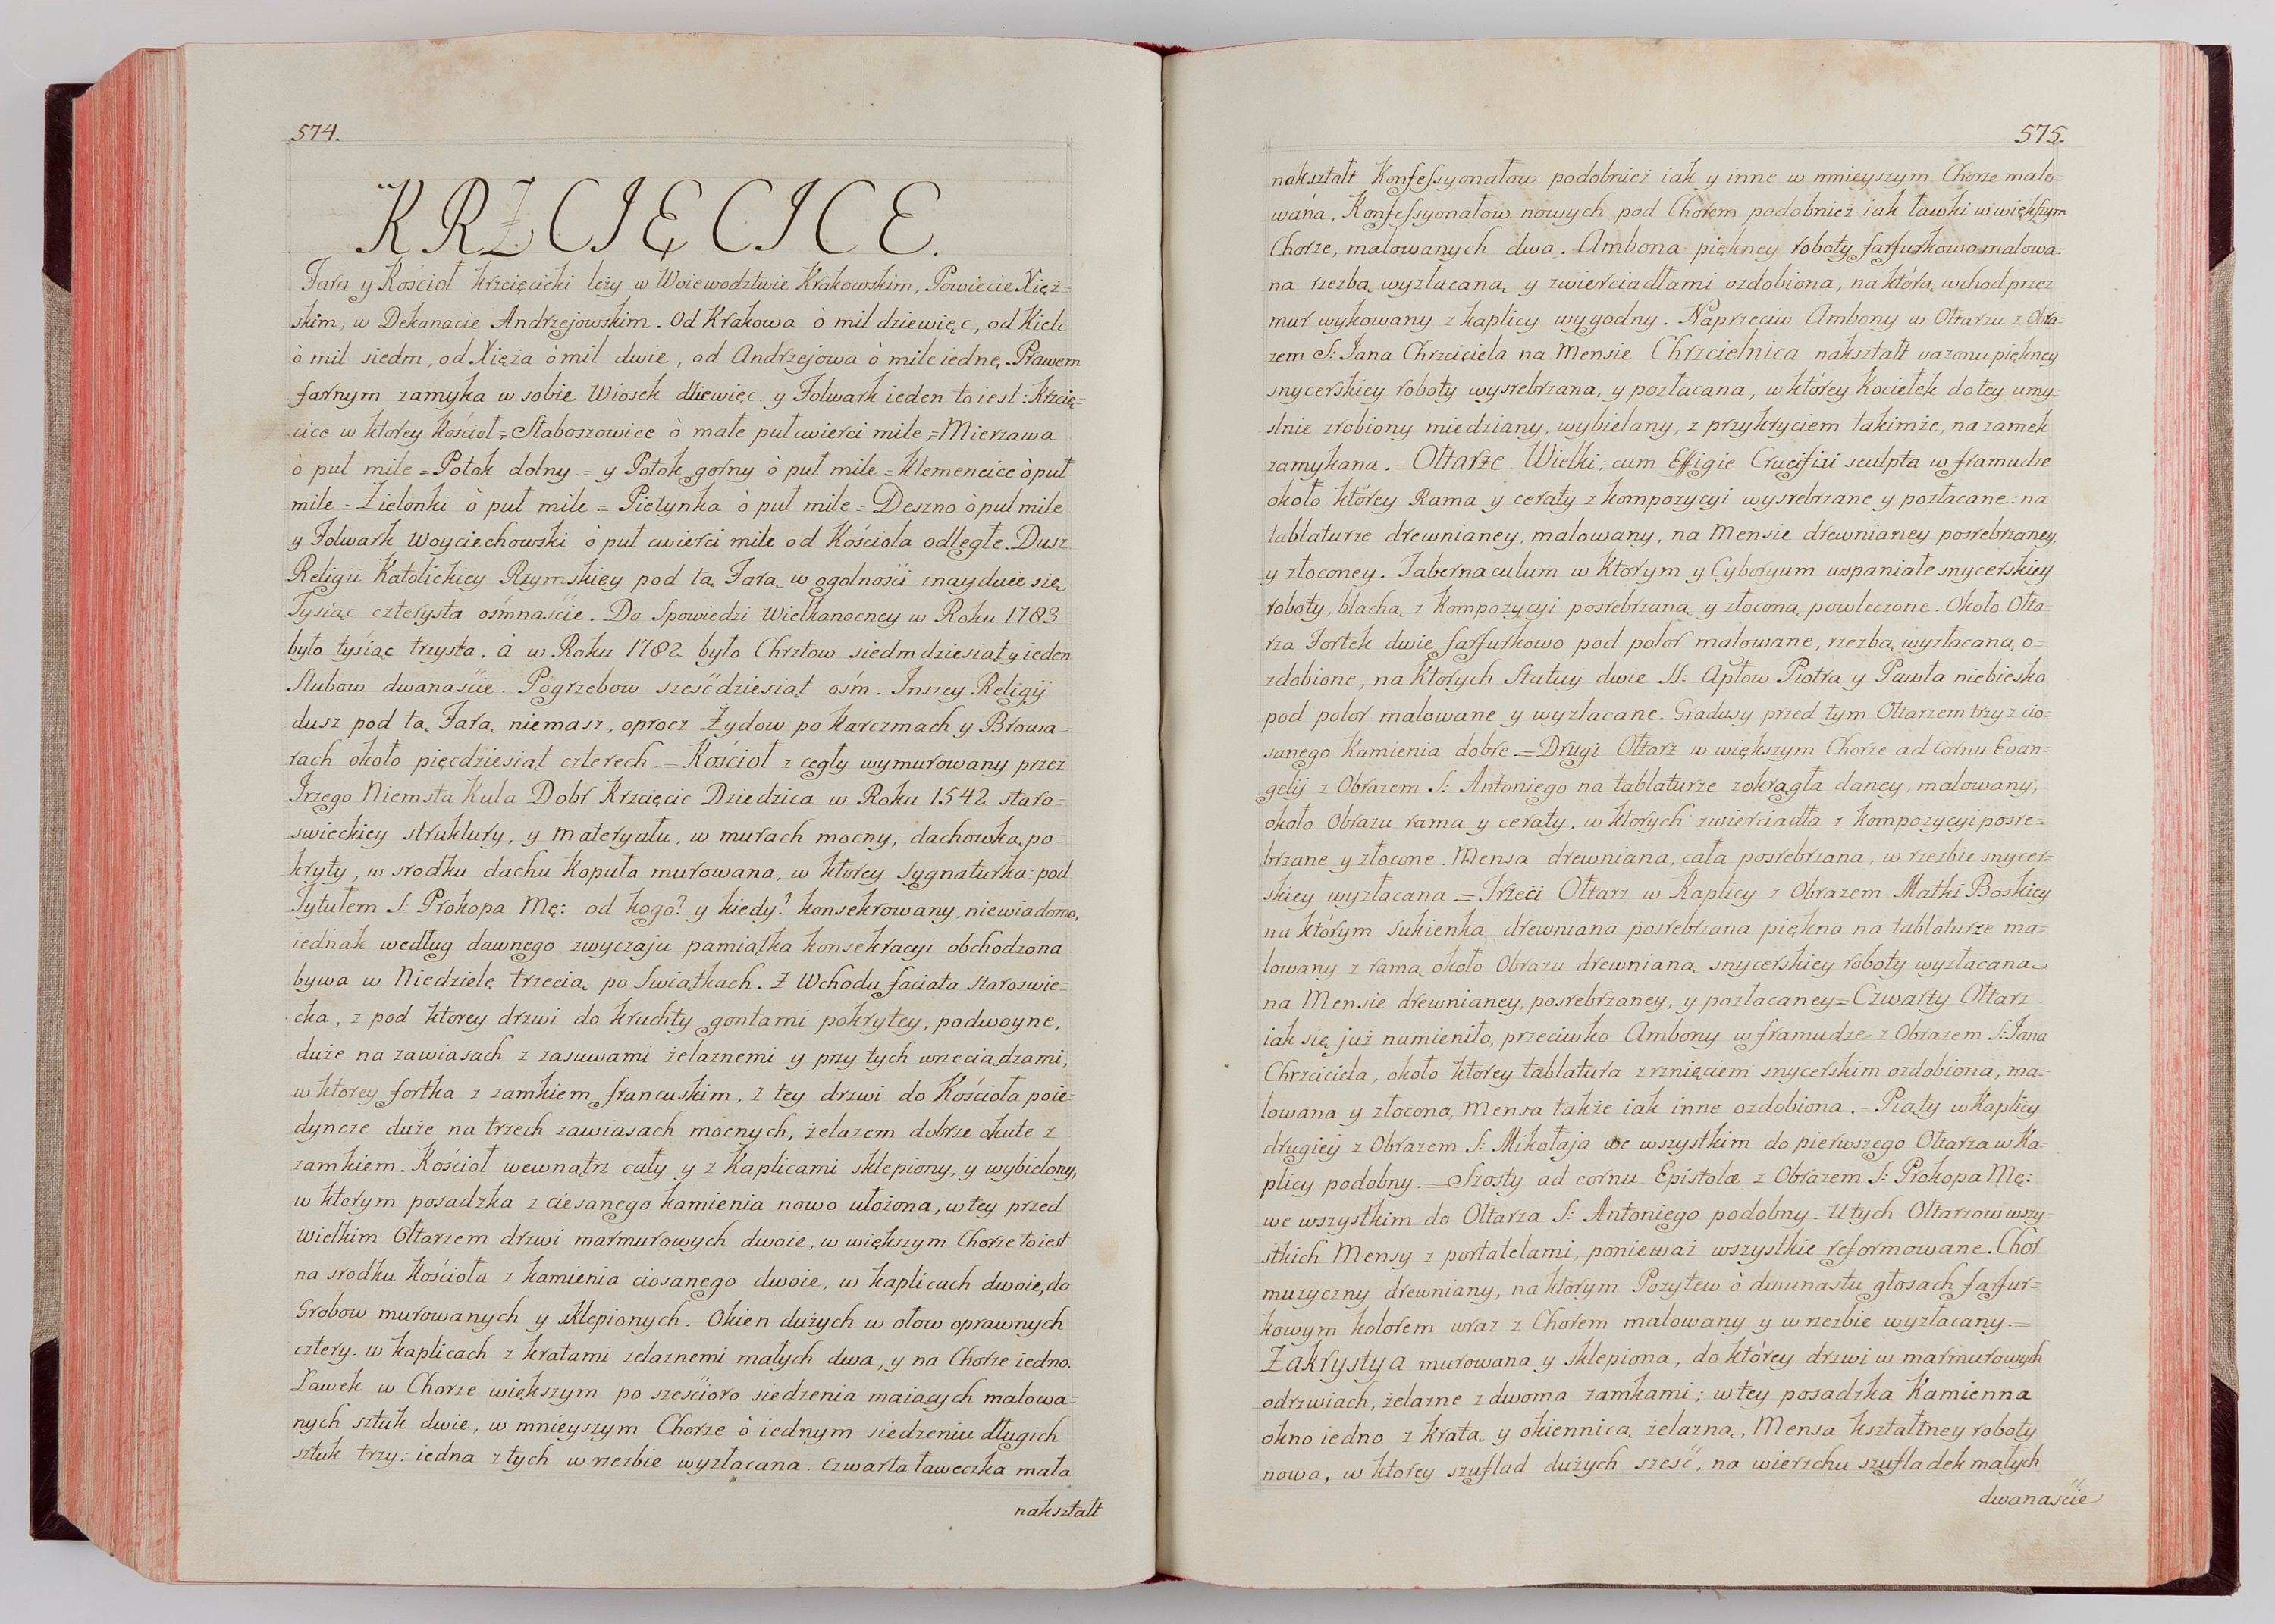 574.
KRZCIĘCICE.
Fara y Kościoł krzcięcicki leży w Woiewodztwie Krakowskim, Powiecie Xięż=
skim, w Dekanacie Andrzejowskim. Od Krakowa ò mil dziewięc, od Kielc
ò mil siedm, od Xięża ò mil dwie, od Andrzejowa ò mile iednę. Prawem
farnym zamyka w sobie Wiosek dziewięc y Folwark ieden to iest: Krzcię=
cice w ktorey Kościoł = Słaboszowice ò małe puł cwierci mile = Mierzawa
ò puł mile = Potok dolny = y Potok gorny ò puł mile = Klemencice ò puł
mile = Zielonki ò puł mile = Pietynka ò puł mile = Deszno ò puł mile
y Folwark Woyciechowski ò puł cwierci mile od Kościoła odległe. Dusz
Religii Katolickiey Rzymskiey pod tą Farą w ogolnosci znayduie się
Tysiąc czterysta osmnaście. Do Spowiedzi Wielkanocney w Roku 1783
było tysiąc trzysta, à w Roku 1782 było Chrztow siedmdziesiąt y ieden
Slubow dwanaście. Pogrzebow sześćdziesiąt ośm. Inszey Religij
dusz pod tą Farą niemasz, oprocz Żydow po karczmach y Browa=
rach około pięcdziesiąt czterech. = Kościoł z cegły wymurowany przez
Jrzego Niemsta Kula Dobr Krzcięcic Dziedzica w Roku 1542 staro=
swieckiey struktury, y materyału, w murach mocny, dachowką po=
kryty, w srodku dachu Kopuła murowana, w ktorey sygnaturka: pod
Tytułem S: Prokopa Mę: od kogo? y kiedy? konsekrowany, niewiadomo,
iednak według dawnego zwyczaju pamiątka konsekracyi obchodzona
bywa w Niedzielę trzecią po Swiątkach. Z Wchodu faciata staroswie=
cka, z pod ktorey drzwi do kruchty gontami pokrytey, podwoyne,
duże na zawiasach z zasuwami żelaznemi y przy tych wrzeciądzami,
w ktorey fortka z zamkiem francuskim, z tey drzwi do Kościoła poie=
dyncze duże na trzech zawiasach mocnych, żelazem dobrze okute z
zamkiem. Kościoł wewnątrz cały y z Kaplicami sklepiony, y wybielony,
w ktorym posadzka z ciesanego kamienia nowo ułożona, w tey przed
Wielkim Ołtarzem drzwi marmurowych dwoie, w większym Chorze to iest
na srodku kościoła z kamienia ciosanego dwoie, w kaplicach dwoie, do
Grobow murowanych y sklepionych. Okien dużych w ołow oprawnych
cztery. w kaplicach z kratami zelaznemi małych dwa, y na Chorze iedno.
Ławek w Chorze większym po sześcioro siedzenia maiących malowa=
nych sztuk dwie, w mnieyszym Chorze ò iednym siedzeniu długich
sztuk trzy: iedna z tych w rzezbie wyzłacana. Czwarta ławeczka mała
nakształt
575.
nakształt Konfessyonałow podobnież iak y inne w mnieyszym Chorze malo=
wana, Konfessyonałow nowych pod Chorem podobnież iak ławki w większym
Chorze, malowanych dwa. Ambona piękney roboty farfurkowo malowa=
na rzezbą wyzłacaną y zwierciadłami ozdobiona, na którą wchod przez
mur wykowany z kaplicy wygodny. Naprzeciw Ambony w Ołtarzu z Obra=
zem S: Jana Chrzciciela na Mensie Chrzcielnica nakształt wazonu piękney
snycerskiey roboty wysrebrzana, y pozłacana, w którey Kociełek do tey umy=
slnie zrobiony miedziany, wybielany, z przykryciem takimże, na zamek
zamykana. = Ołtarze Wielki; cum Effigie Crucifixi sculpta w framudze
około którey Rama y ceraty z kompozycyi wysrebrzane y pozłacane: na
tablaturze drewnianey, malowany, na Mensie drewnianey posrebrzaney,
y złoconey. Tabernaculum w Ktorym y Cyboryum wspaniałe snycerskiey
roboty, blachą z Kompozycyi posrebrzaną y złoconą powleczone. Około Ołta=
rza Fortek dwie farfurkowo pod polor malowane, rzezbą wyzłacaną o=
zdobione, na Ktorych Statuy dwie SS: Apłow Piotra y Pawła niebiesko
pod polor malowane y wyzłacane. Gradusy przed tym Ołtarzem trzy z cio=
sanego Kamienia dobre = Drugi Ołtarz w większym Chorze ad Cornu Evan=
gelij z Obrazem S: Antoniego na tablaturze zokrągła daney, malowany,
około Obrazu rama y ceraty, w ktorych zwierciadła z kompozycyi posre=
brzane y złocone. Mensa drewniana, cała posrebrzana, w rzezbie snycer=
skiey wyzłacana = Trzeci Ołtarz w Kaplicy z Obrazem Matki Boskiey
na którym sukienka drewniana posrebrzana piękna na tablaturze ma=
lowany z ramą około Obrazu drewnianą snycerskiey roboty wyzłacaną
na Mensie drewnianey, posrebrzaney, y pozłacaney = Czwarty Ołtarz
iak się już namieniło, przeciwko Ambony w framudze z Obrazem S: Jana
Chrzciciela, około ktorey tablatura z rznięciem snycerskim ozdobiona, ma=
lowana y złocona, Mensa także iak inne ozdobiona. = Piąty w Kaplicy
drugiey z Obrazem S: Mikołaja we wszystkim do pierwszego Ołtarza w Ka=
plicy podobny. = Szosty ad cornu Epistolæ z Obrazem S: Prokopa Mę:
we wszystkim do Ołtarza S: Antoniego podobny. U tych Ołtarzow wszy=
stkich Mensy z portatelami, ponieważ wszystkie reformowane. Chor
muzyczny drewniany, na ktorym Pozytew ò dwunastu głosach farfur=
kowym kolorem wraz z Chorem malowany y w rzezbie wyzłacany. =
Zakrystya murowana y sklepiona, do którey drzwi w marmurowych
odrzwiach, żelazne z dwoma zamkami; w tey posadzka Kamienna
okno iedno z kratą y okiennicą żelazną, Mensa kształtney roboty
nowa, w ktorey szuflad dużych sześć, na wierzchu szufladek małych
dwanaście